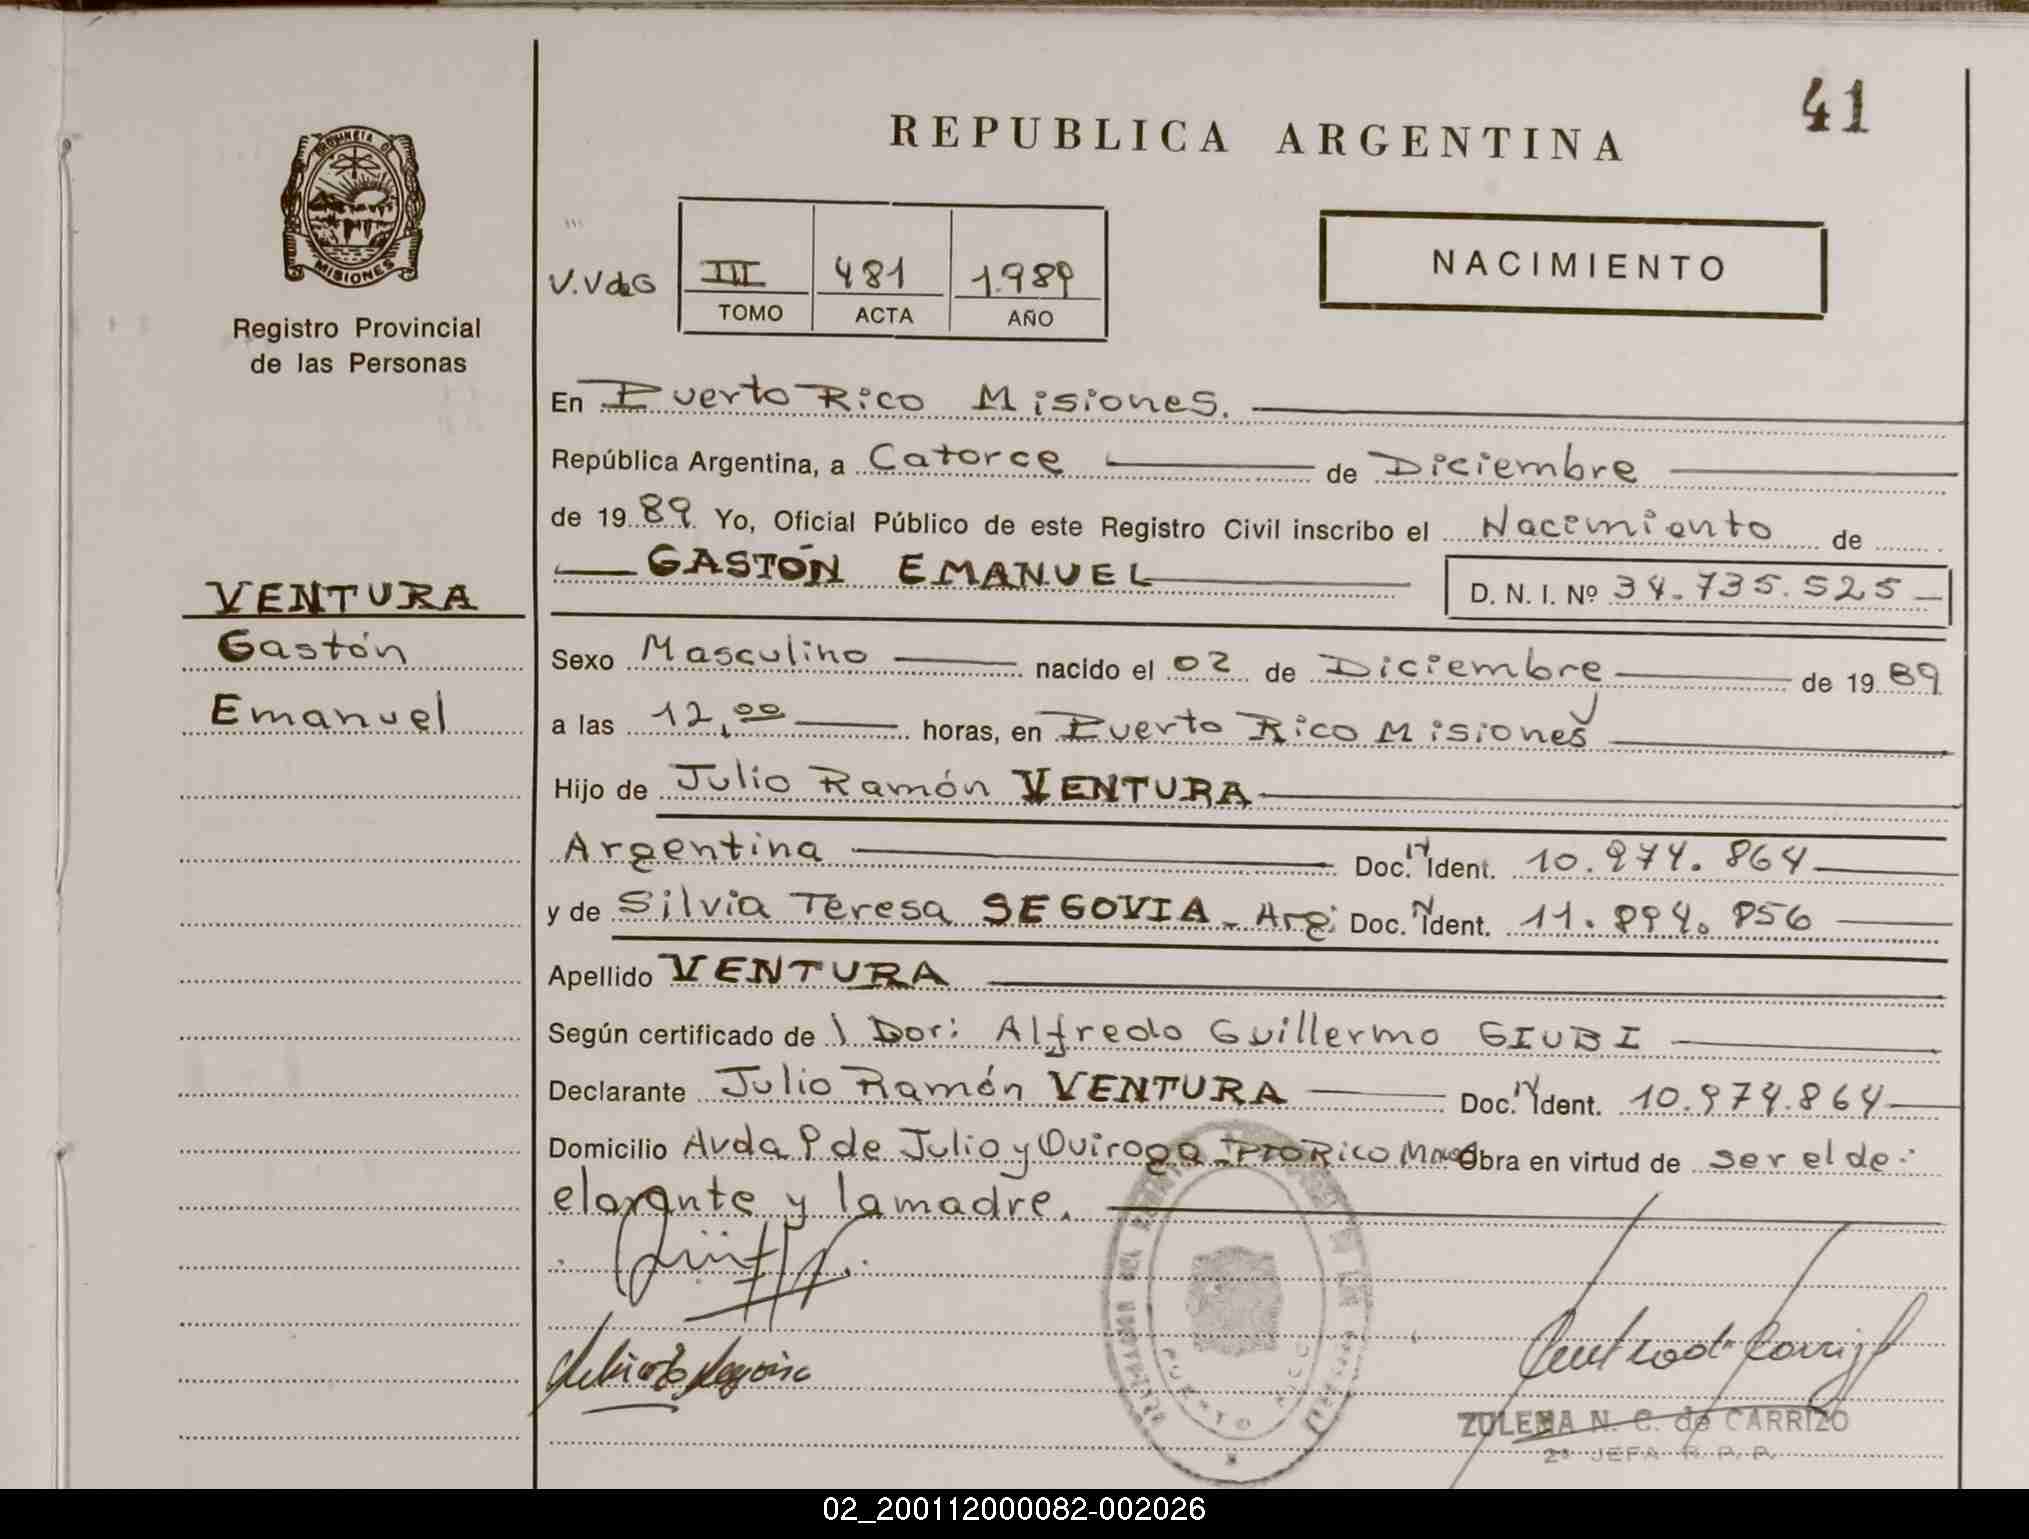 41
REPUBLICA ARGENTINA
PROVINCIA DE
MISIONES
Registro Provincial
de las Personas
V.VdeG
III 481 1.989
TOMO ACTA AÑO
NACIMIENTO
En Puerto Rico Misiones.
República Argentina, a Catorce de Diciembre
de 1989 Yo, Oficial Público de este Registro Civil inscribo el Nacimiento de
GASTÓN EMANUEL D. N. I. Nº 34.735.525
VENTURA
Gastón
Emanuel
Sexo Masculino nacido el 02 de Diciembre de 1989
a las 12,00 horas, en Puerto Rico Misiones
Hijo de Julio Ramón VENTURA
Argentina Doc. N Ident. 10.974.864
y de Silvia Teresa SEGOVIA - Arg: Doc. N Ident. 11.894.856
Apellido VENTURA
Según certificado de l Dor: Alfredo Guillermo GIUBI
Declarante Julio Ramón VENTURA Doc. N Ident. 10.974.864
Domicilio Avda 9 de Julio y Quiroga PTO Rico Obra en virtud de ser el de-
clarante y la madre.
PUERTO RICO
ZULEMA N. C. de CARRIZO
2ª JEFA R. P. P.
02_200112000082-002026